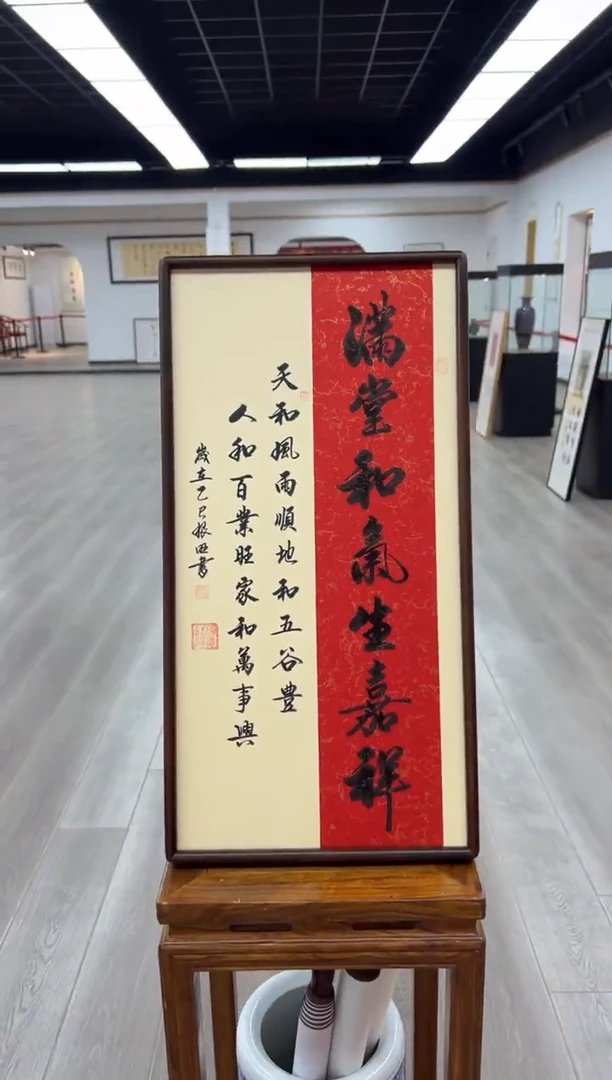 滿堂和氣生嘉祥
天和風雨順地和五谷豐
人和百業旺家和萬事興
歲在乙巳振西書